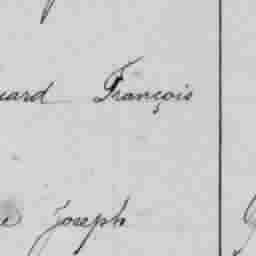 uard François
e Joseph